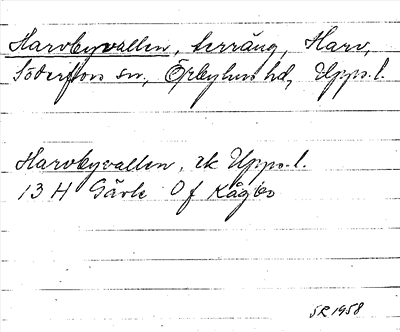 Harvbyvallen, terräng, Harv,
Söderfors sn, Örbyhus hd, Upps. l.
Harvbyvallen, ek Upps. l.
13 H Gävle 0 f Kågbo
SR 1958